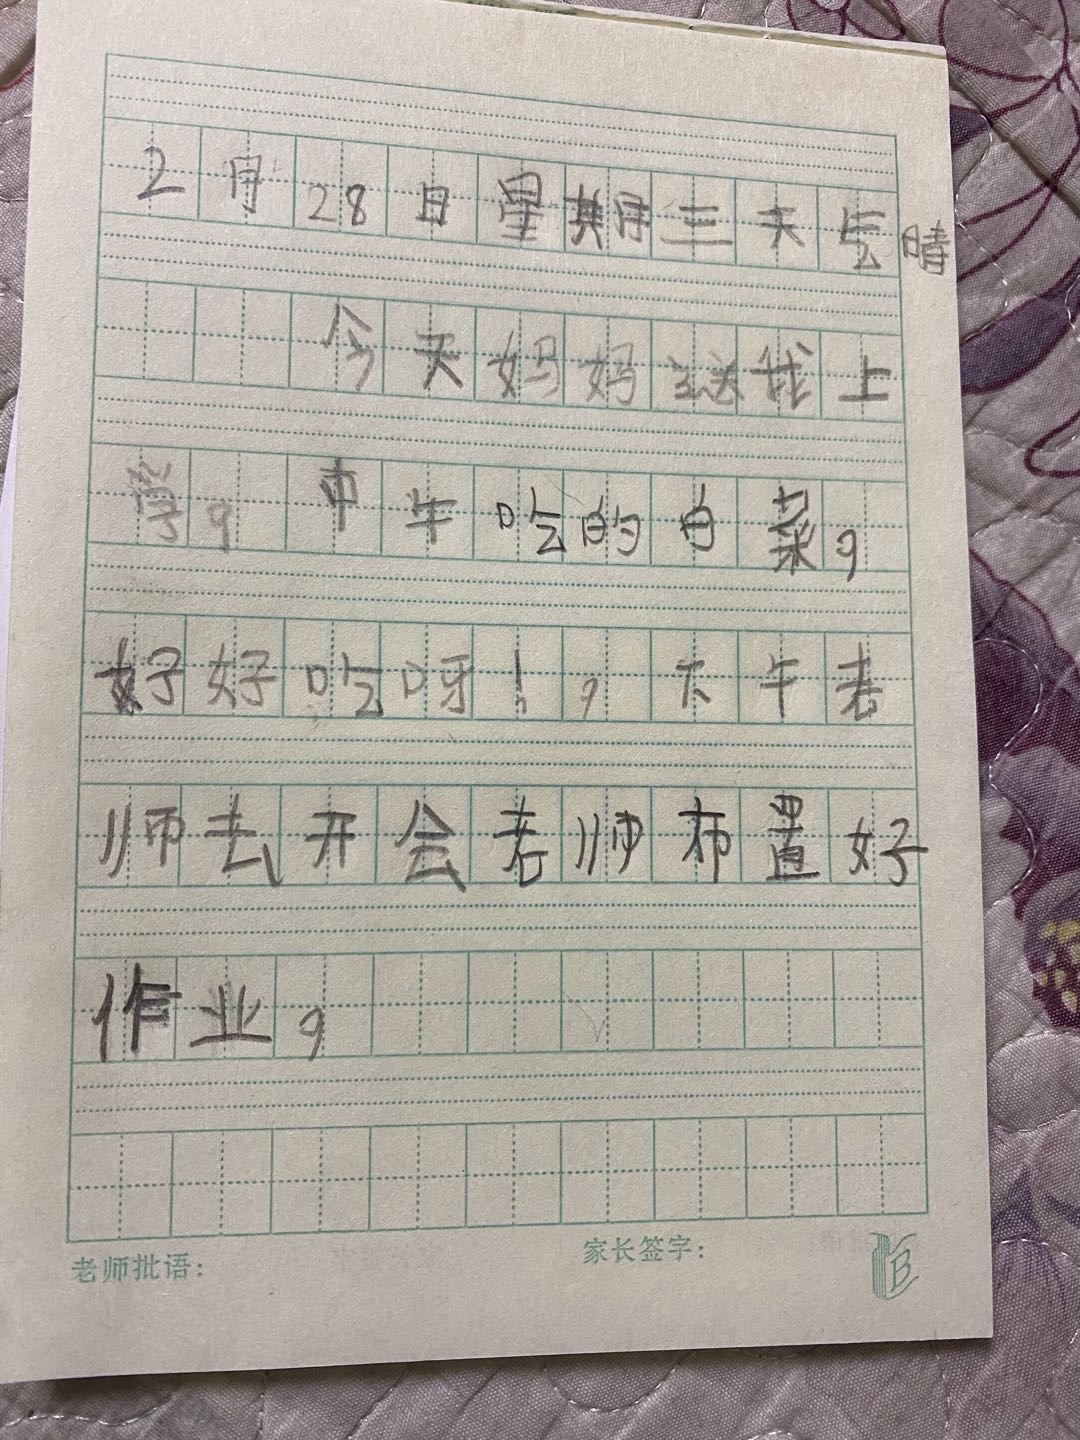 2月28日星期三天气晴
今天妈妈送我上
学，中午吃的白菜，
好好吃呀！，下午老
师去开会老师布置好
作业，
老师批语：
家长签字：